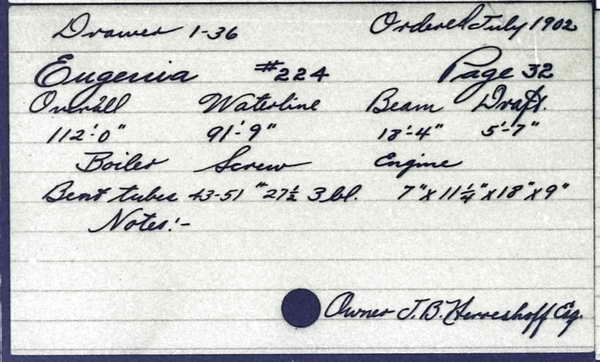 Drawer 1-36 Ordered July 1902
Eugenia #224 Page 32
Overall Waterline Beam Draft.
112'-0" 91'-9" 13'-4" 5'-7"
Boiler Screw Engine
Bent tubes 43-51 "27½ 3 bl. 7"x11¼"x18"x9"
Notes:-
Owner J.B. Herreshoff Esq.